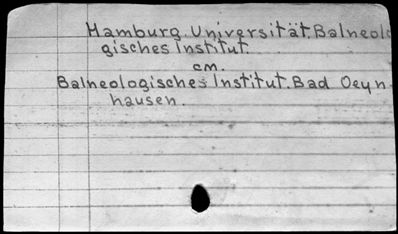 Hamburg. Universität. Balneolo
gisches Institut
cm.
Balneologisches Institut. Bad Oeyn
hausen.